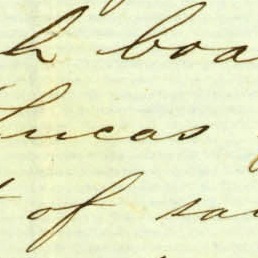 h boa
Lucas
of sa